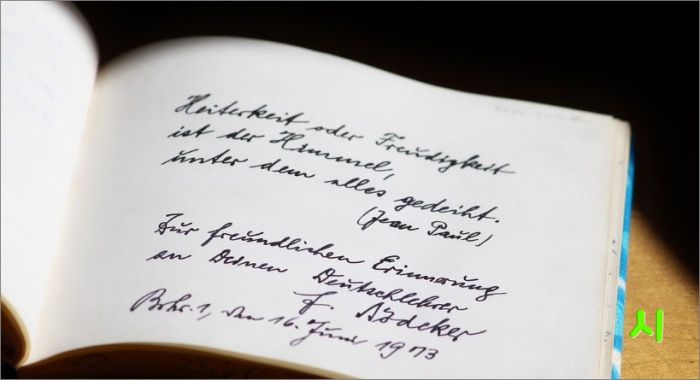 Heiterkeit oder Freudigkeit
ist der Himmel,
unter dem alles gedeiht.
(Jean Paul)
Zur freundlichen Erinnerung
an Deinen Deutschlehrer
F.
den 16. Juni 1973
시